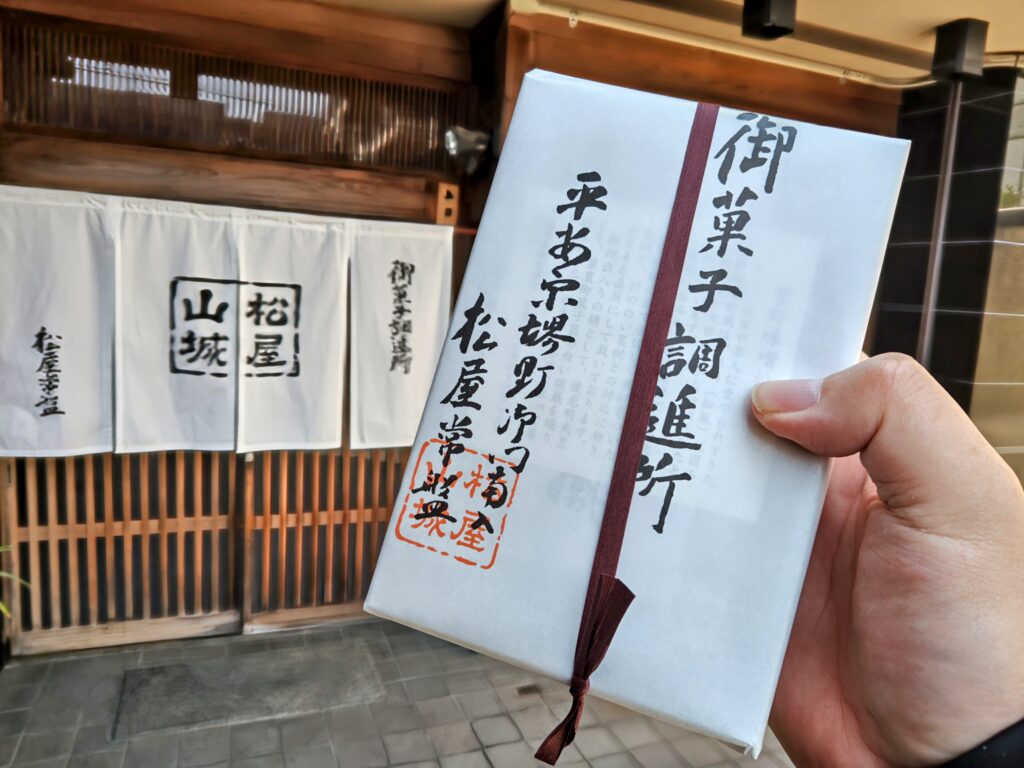 御菓子調進所
平安京堺町御門南入
松屋常盤
松屋
山城
御菓子調進所
松屋
山城
松屋常盤